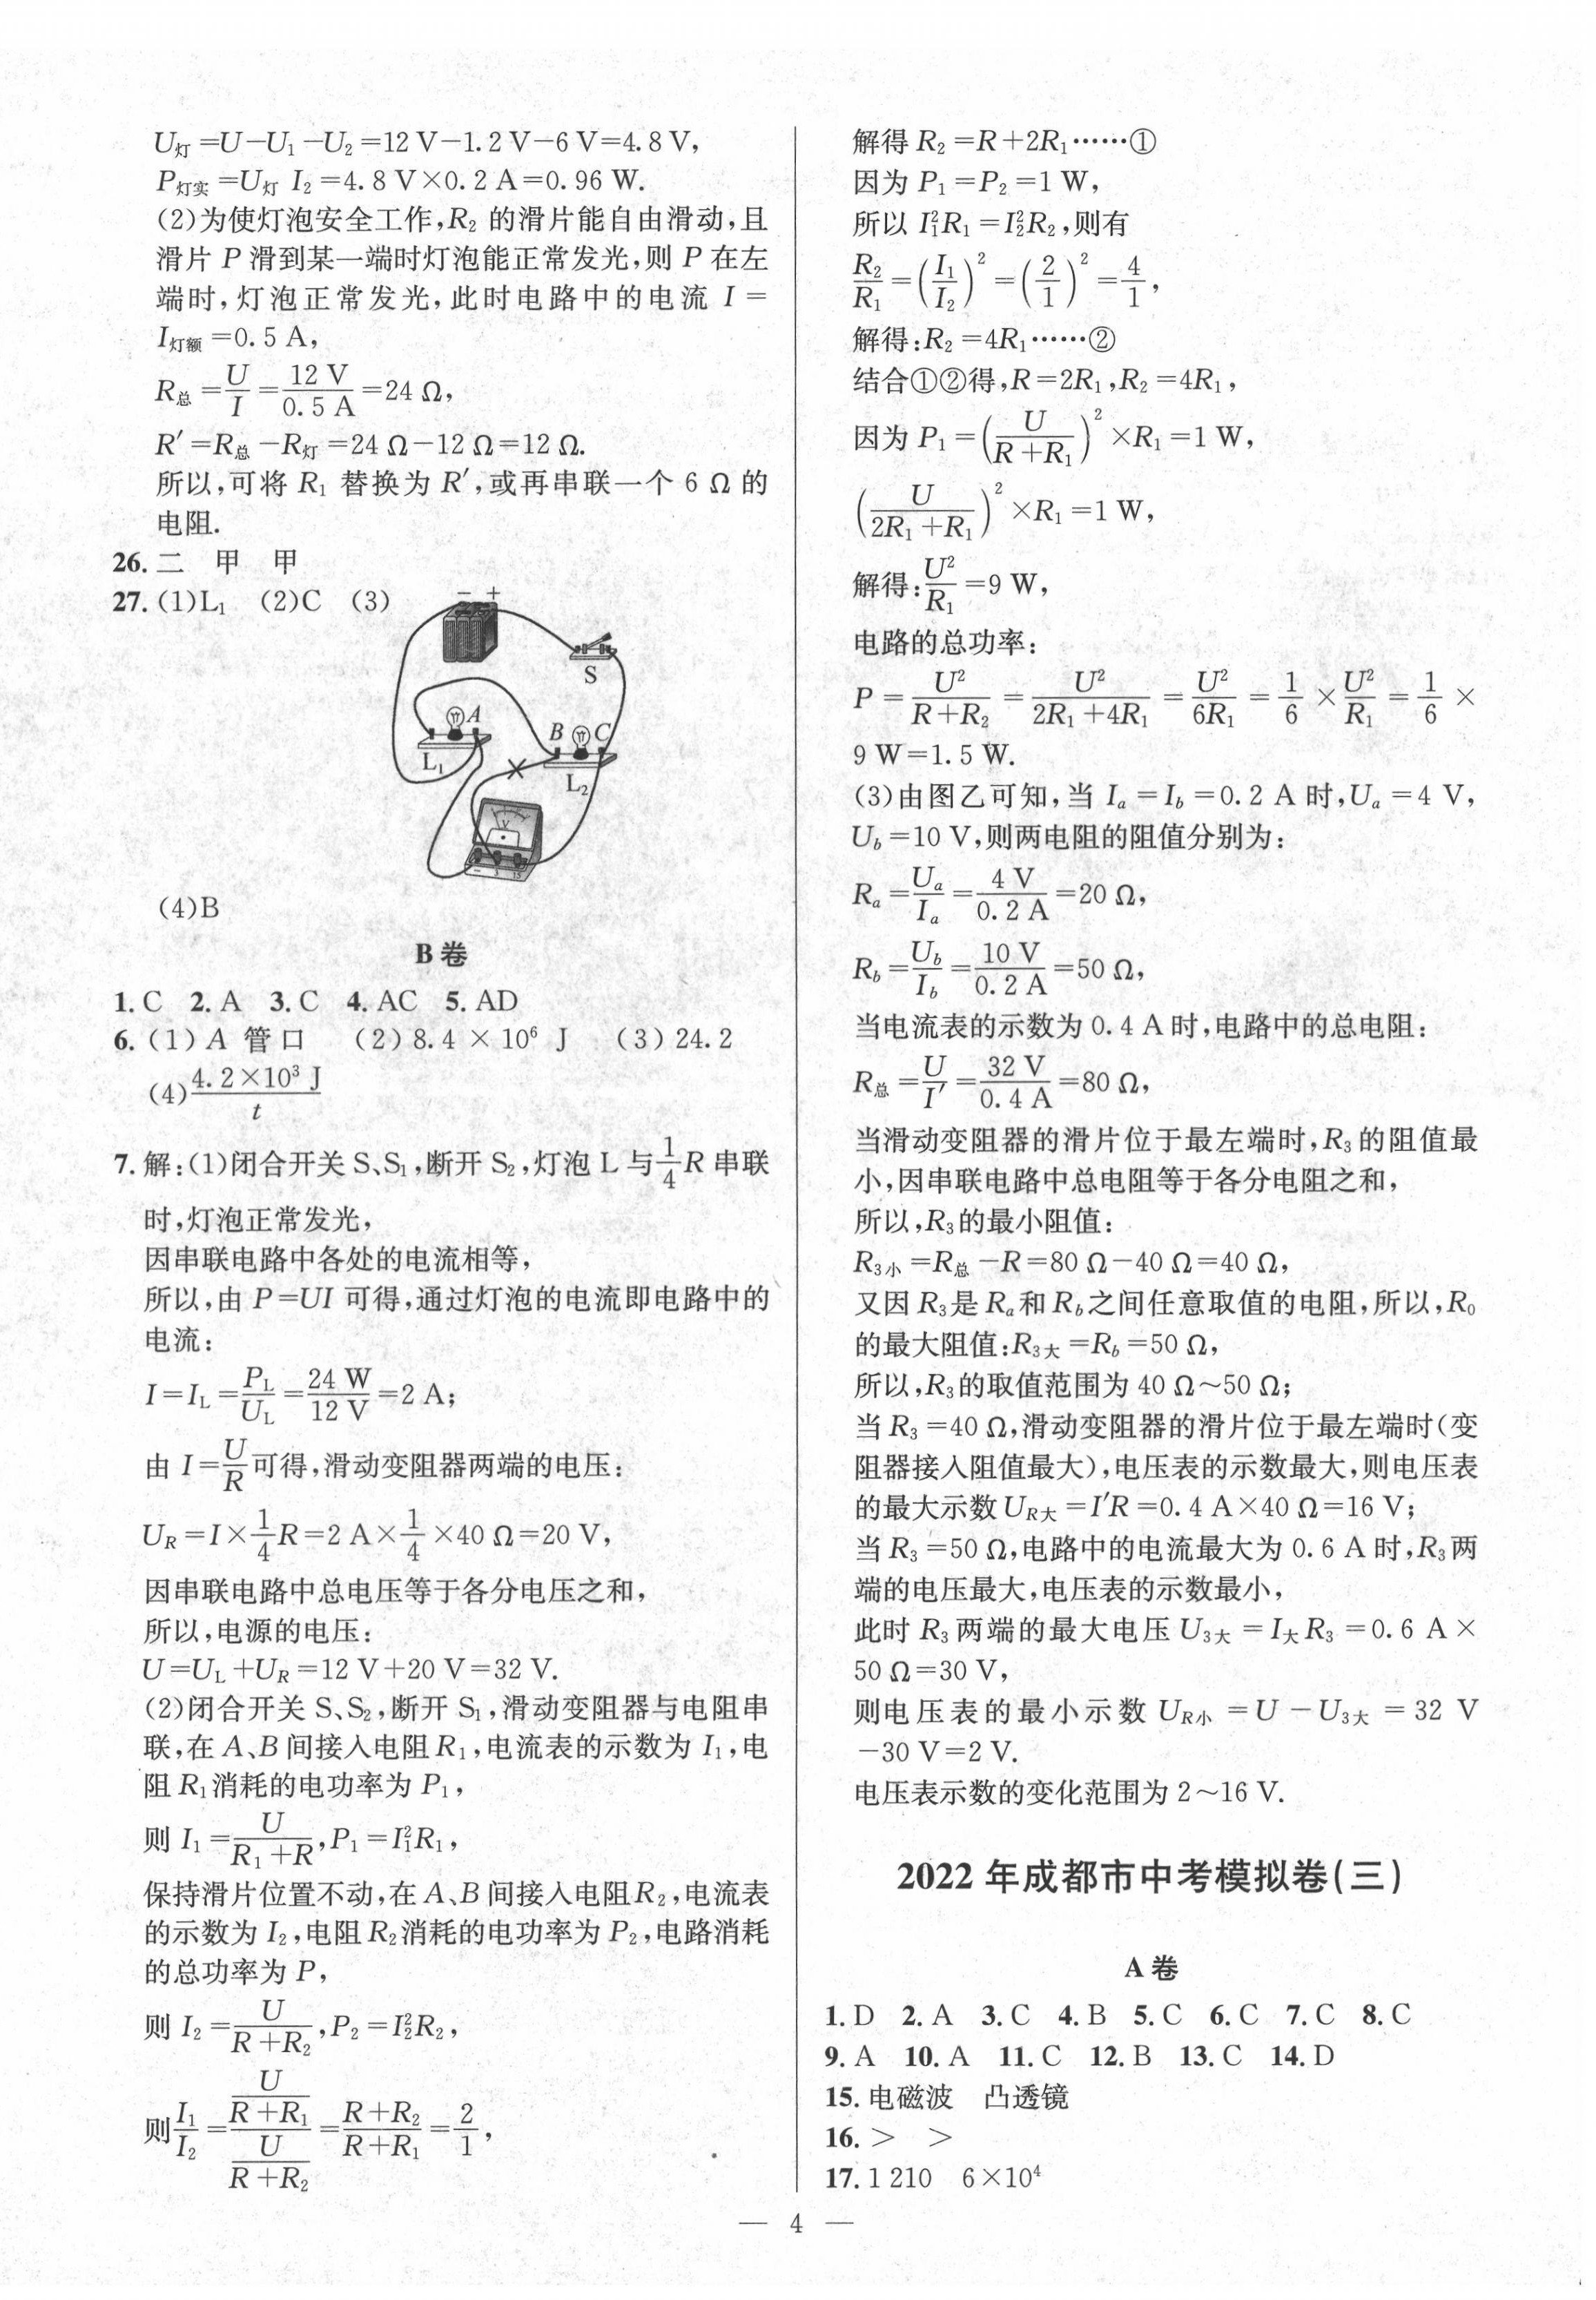 U灯=U-U₁-U₂=12 V-1.2 V-6 V=4.8 V,
P灯实=U灯 I₂=4.8 V×0.2 A=0.96 W.
(2)为使灯泡安全工作,R₂ 的滑片能自由滑动,且
滑片 P 滑到某一端时灯泡能正常发光,则 P 在左
端时,灯泡正常发光,此时电路中的电流 I=
I灯额=0.5 A,
R总=U/I=12 V/0.5 A=24 Ω,
R′=R总-R灯=24 Ω-12 Ω=12 Ω.
所以,可将 R₁ 替换为 R′,或再串联一个 6 Ω 的
电阻.
26. 二 甲 甲
27. (1)L₁ (2)C (3)
- +
S
A
B C
L₁
L₂
V
- 3 15
(4)B
B 卷
1. C 2. A 3. C 4. AC 5. AD
6. (1)A 管口 (2)8.4×10⁶ J (3)24.2
(4)4.2×10³ J/t
7. 解:(1)闭合开关 S、S₁,断开 S₂,灯泡 L 与1/4R 串联
时,灯泡正常发光,
因串联电路中各处的电流相等,
所以,由 P=UI 可得,通过灯泡的电流即电路中的
电流:
I=I_L=P_L/U_L=24 W/12 V=2 A;
由 I=U/R可得,滑动变阻器两端的电压:
U_R=I×1/4R=2 A×1/4×40 Ω=20 V,
因串联电路中总电压等于各分电压之和,
所以,电源的电压:
U=U_L+U_R=12 V+20 V=32 V.
(2)闭合开关 S、S₂,断开 S₁,滑动变阻器与电阻串
联,在 A、B 间接入电阻 R₁,电流表的示数为 I₁,电
阻 R₁消耗的电功率为 P₁,
则 I₁=U/(R₁+R),P₁=I₁²R₁,
保持滑片位置不动,在 A、B 间接入电阻R₂,电流表
的示数为 I₂,电阻 R₂消耗的电功率为 P₂,电路消耗
的总功率为 P,
则 I₂=U/(R+R₂),P₂=I₂²R₂,
则I₁/I₂=(U/(R+R₁))/(U/(R+R₂))=(R+R₂)/(R+R₁)=2/1,
解得 R₂=R+2R₁……①
因为 P₁=P₂=1 W,
所以 I₁²R₁=I₂²R₂,则有
R₂/R₁=(I₁/I₂)²=(2/1)²=4/1,
解得:R₂=4R₁……②
结合①②得,R=2R₁,R₂=4R₁,
因为 P₁=(U/(R+R₁))²×R₁=1 W,
(U/(2R₁+R₁))²×R₁=1 W,
解得:U²/R₁=9 W,
电路的总功率:
P=U²/(R+R₂)=U²/(2R₁+4R₁)=U²/6R₁=1/6×U²/R₁=1/6×
9 W=1.5 W.
(3)由图乙可知,当 Iₐ=I_b=0.2 A 时,Uₐ=4 V,
U_b=10 V,则两电阻的阻值分别为:
Rₐ=Uₐ/Iₐ=4 V/0.2 A=20 Ω,
R_b=U_b/I_b=10 V/0.2 A=50 Ω,
当电流表的示数为 0.4 A 时,电路中的总电阻:
R总=U/I′=32 V/0.4 A=80 Ω,
当滑动变阻器的滑片位于最左端时,R₃的阻值最
小,因串联电路中总电阻等于各分电阻之和,
所以,R₃的最小阻值:
R₃小=R总-R=80 Ω-40 Ω=40 Ω,
又因 R₃是 Rₐ和 R_b之间任意取值的电阻,所以,R₀
的最大阻值:R₃大=R_b=50 Ω,
所以,R₃的取值范围为 40 Ω~50 Ω;
当 R₃=40 Ω,滑动变阻器的滑片位于最左端时(变
阻器接入阻值最大),电压表的示数最大,则电压表
的最大示数 U_R大=I′R=0.4 A×40 Ω=16 V;
当 R₃=50 Ω,电路中的电流最大为 0.6 A 时,R₃两
端的电压最大,电压表的示数最小,
此时 R₃两端的最大电压 U₃大=I大R₃=0.6 A×
50 Ω=30 V,
则电压表的最小示数 U_R小=U-U₃大=32 V
-30 V=2 V.
电压表示数的变化范围为 2~16 V.
2022 年成都市中考模拟卷(三)
A 卷
1. D 2. A 3. C 4. B 5. C 6. C 7. C 8. C
9. A 10. A 11. C 12. B 13. C 14. D
15. 电磁波 凸透镜
16. > >
17. 1 210 6×10⁴
— 4 —